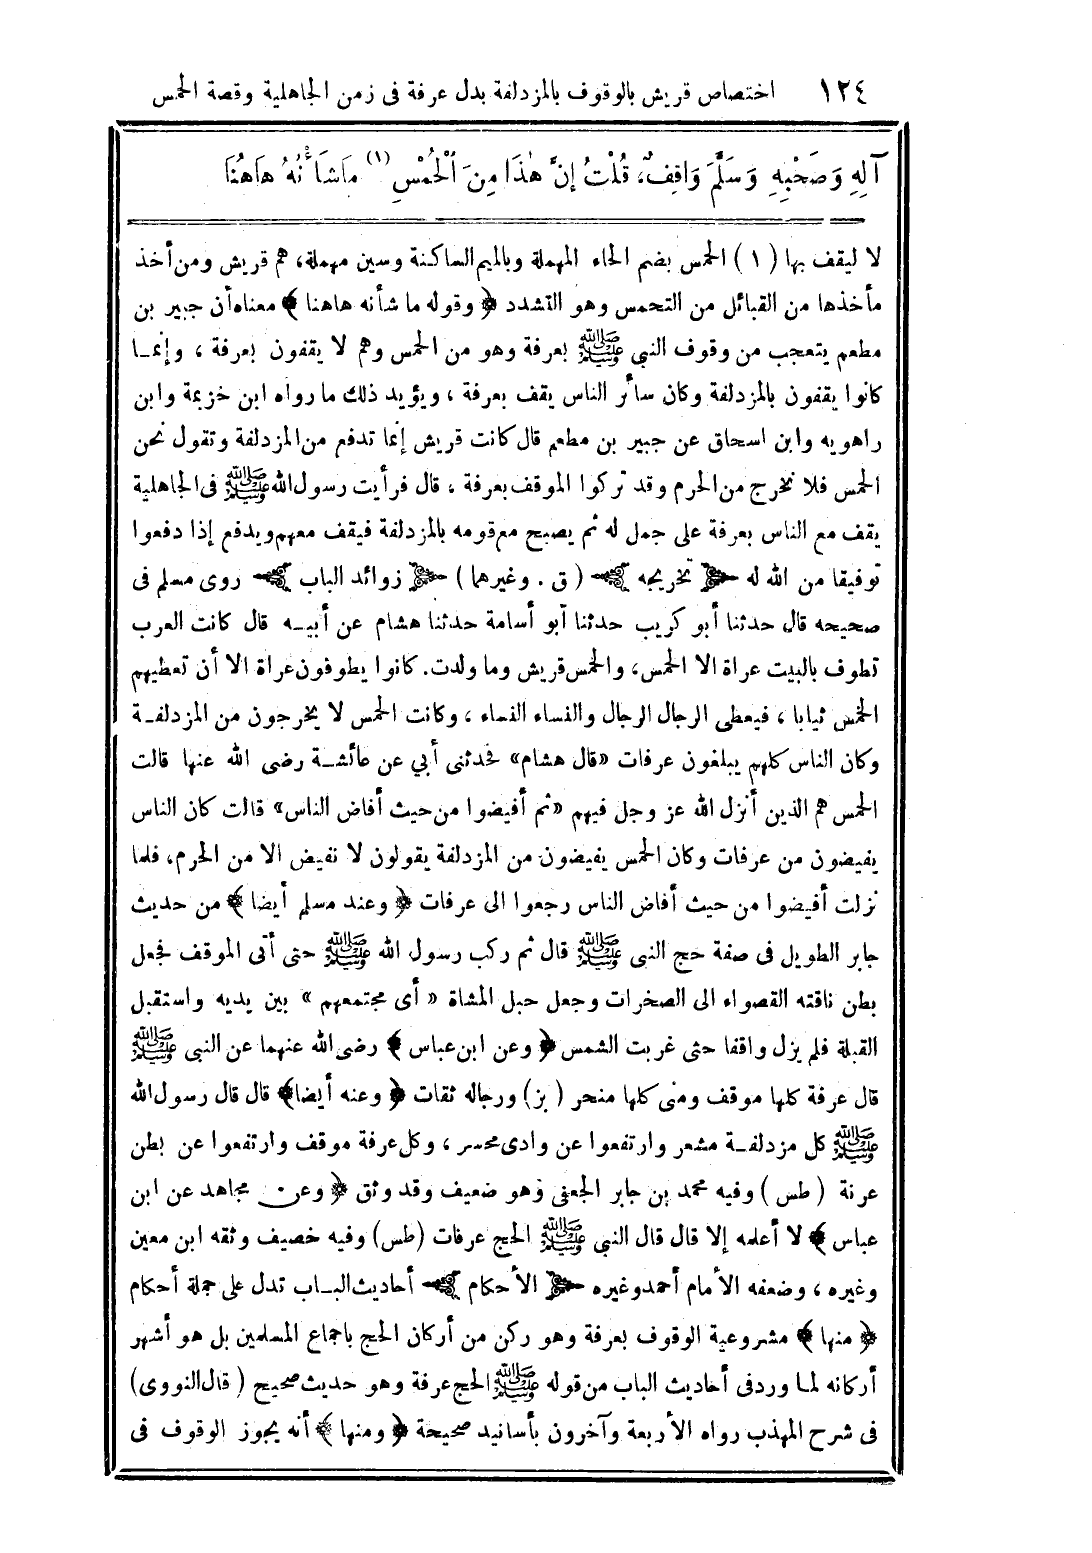 ١٢٤ اختصاص قريش بالوقوف بالمزدلفة بدل عرفة فى زمن الجاهلية وقصة الحمس
آلِهِ وَصَحْبِهِ وَسَلَّمَ وَاقِفٌ، قُلْتُ إِنَّ هٰذَا مِنَ ٱلْحُمْسِ (١) مَا شَأْنُهُ هَاهُنَا
لا ليقف بها (١) الحمس بضم الحاء المهملة وبالميم الساكنة وسين مهملة، هم قريش ومن أخذ
مأخذها من القبائل من التحمس وهو التشدد ﴿وقوله ما شأنه هاهنا﴾ معناه أن جبير بن
مطعم يتعجب من وقوف النبى ﷺ بعرفة وهو من الحمس وهم لا يقفون بعرفة ، وإنما
كانوا يقفون بالمزدلفة وكان سائر الناس يقف بعرفة ، ويؤيد ذلك ما رواه ابن خزيمة وابن
راهويه وابن اسحاق عن جبير بن مطعم قال كانت قريش إنما تدفع من المزدلفة وتقول نحن
الحمس فلا نخرج من الحرم وقد تركوا الموقف بعرفة ، قال فرأيت رسول الله ﷺ فى الجاهلية
يقف مع الناس بعرفة على جمل له ثم يصبح مع قومه بالمزدلفة فيقف معهم ويدفع إذا دفعوا
توفيقا من الله له ﴿ تخريجه ﴾ ( ق . وغيرهما ) ﴿ زوائد الباب ﴾ روى مسلم فى
صحيحه قال حدثنا أبو كريب حدثنا أبو أسامة حدثنا هشام عن أبيه قال كانت العرب
تطوف بالبيت عراة الا الحمس، والحمس قريش وما ولدت. كانوا يطوفون عراة الا أن تعطيهم
الحمس ثيابا ، فيعطى الرجال الرجال والنساء النساء ، وكانت الحمس لا يخرجون من المزدلفة
وكان الناس كلهم يبلغون عرفات «قال هشام» فحدثنى أبي عن عائشة رضى الله عنها قالت
الحمس هم الذين أنزل الله عز وجل فيهم «ثم أفيضوا من حيث أفاض الناس» قالت كان الناس
يفيضون من عرفات وكان الحمس يفيضون من المزدلفة يقولون لا نفيض الا من الحرم، فلما
نزلت أفيضوا من حيث أفاض الناس رجعوا الى عرفات ﴿وعند مسلم أيضا﴾ من حديث
جابر الطويل فى صفة حج النبى ﷺ قال ثم ركب رسول الله ﷺ حتى أتى الموقف فجعل
بطن ناقته القصواء الى الصخرات وجعل حبل المشاة « أى مجتمعهم » بين يديه واستقبل
القبلة فلم يزل واقفا حتى غربت الشمس ﴿وعن ابن عباس﴾ رضى الله عنهما عن النبى ﷺ
قال عرفة كلها موقف ومنى كلها منحر ( بز) ورجاله ثقات ﴿وعنه أيضا﴾ قال قال رسول الله
ﷺ كل مزدلفة مشعر وارتفعوا عن وادى محسر ، وكل عرفة موقف وارتفعوا عن بطن
عرنة ( طس ) وفيه محمد بن جابر الجعفى وهو ضعيف وقد وثق ﴿وعن مجاهد عن ابن
عباس﴾ لا أعلمه إلا قال قال النبي ﷺ الحج عرفات (طس) وفيه خصيف وثقه ابن معين
وغيره ، وضعفه الأمام أحمد وغيره ﴿ الأحكام ﴾ أحاديث الباب تدل على جملة أحكام
﴿منها﴾ مشروعية الوقوف بعرفة وهو ركن من أركان الحج باجماع المسلمين بل هو أشهر
أركانه لما ورد فى أحاديث الباب من قوله ﷺ الحج عرفة وهو حديث صحيح ( قال النووى)
فى شرح المهذب رواه الأربعة وآخرون بأسانيد صحيحة ﴿ومنها﴾ أنه يجوز الوقوف فى